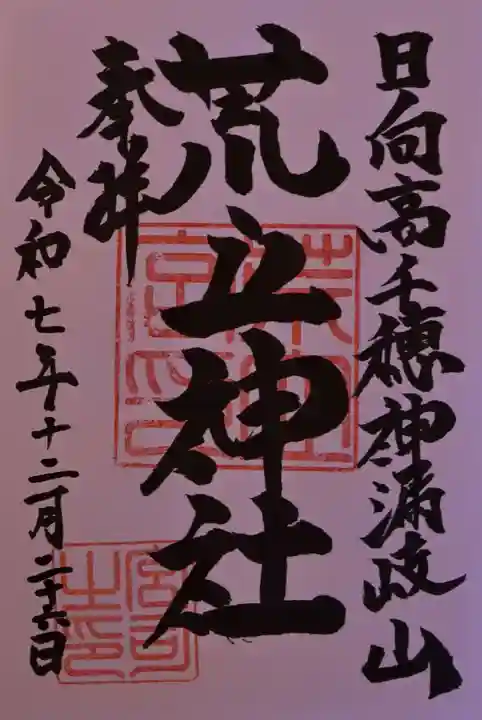 日向高千穂神漏岐山
荒立神社
奉拝
令和七年十二月二十六日